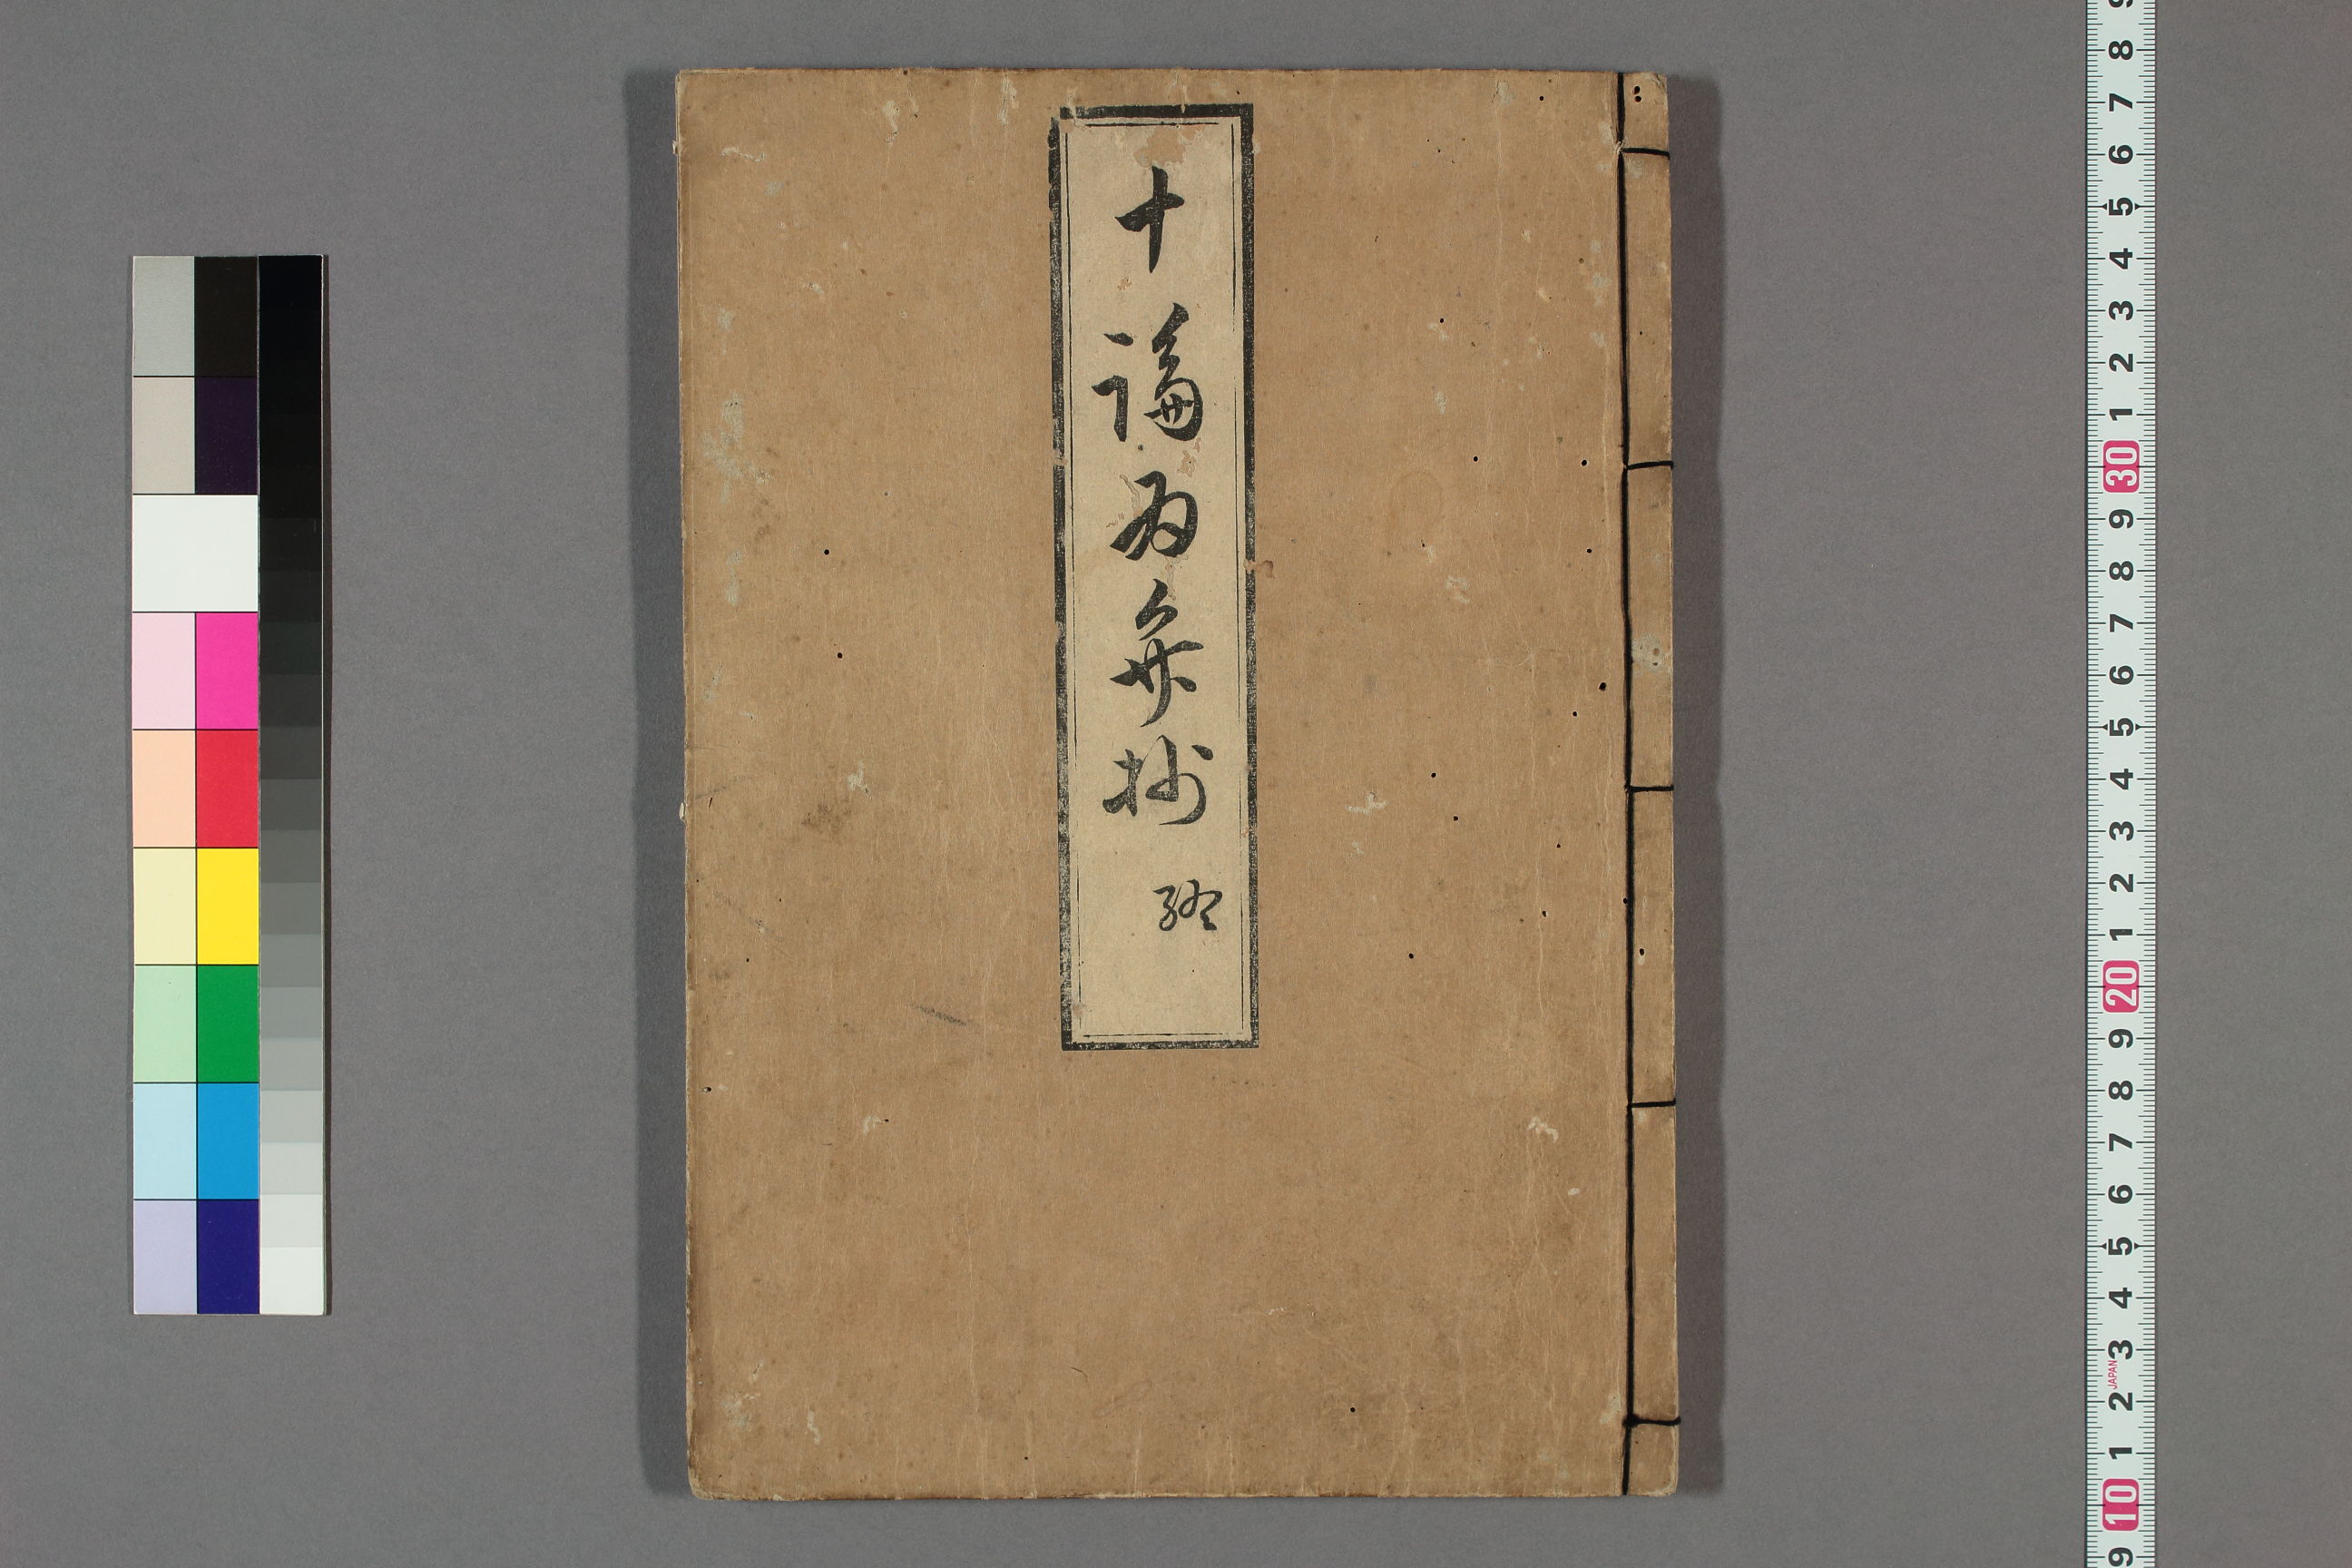 十論為弁抄 終
9
8
7
6
5
4
3
2
1
30
9
8
7
6
5
4
3
2
1
20
9
8
7
6
5
4
3
JAPAN
2
1
10
9